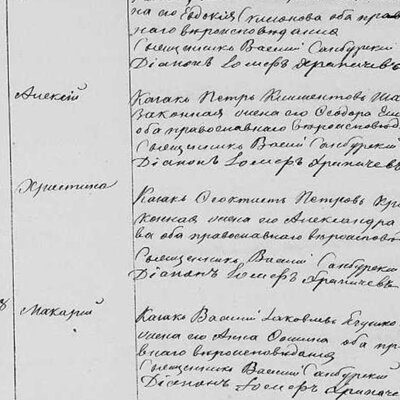 на его Евдокія Симонова оба прав
наго вѣроисповѣданія
Священникъ Василій Санбурскій
Діаконъ Іосифъ
Алексій
Казакъ Петръ Климентовъ
законная жена его Ѳеодора
оба православнаго вѣроисповѣд
Священникъ Василій Санбурскій
Діаконъ Іосифъ
Христина
Казакъ Ѳеоктистъ Петровъ
конная жена его Александра
ва оба православнаго вѣроисповѣ
Священникъ Василій Санбурскій
Діаконъ Іосифъ
8
Макарій
Казакъ Василій Іаковлевъ
жена его Анна Фомина оба пр
внаго вѣроисповѣданія
Священникъ Василій Санбурскій
Діаконъ Іосифъ